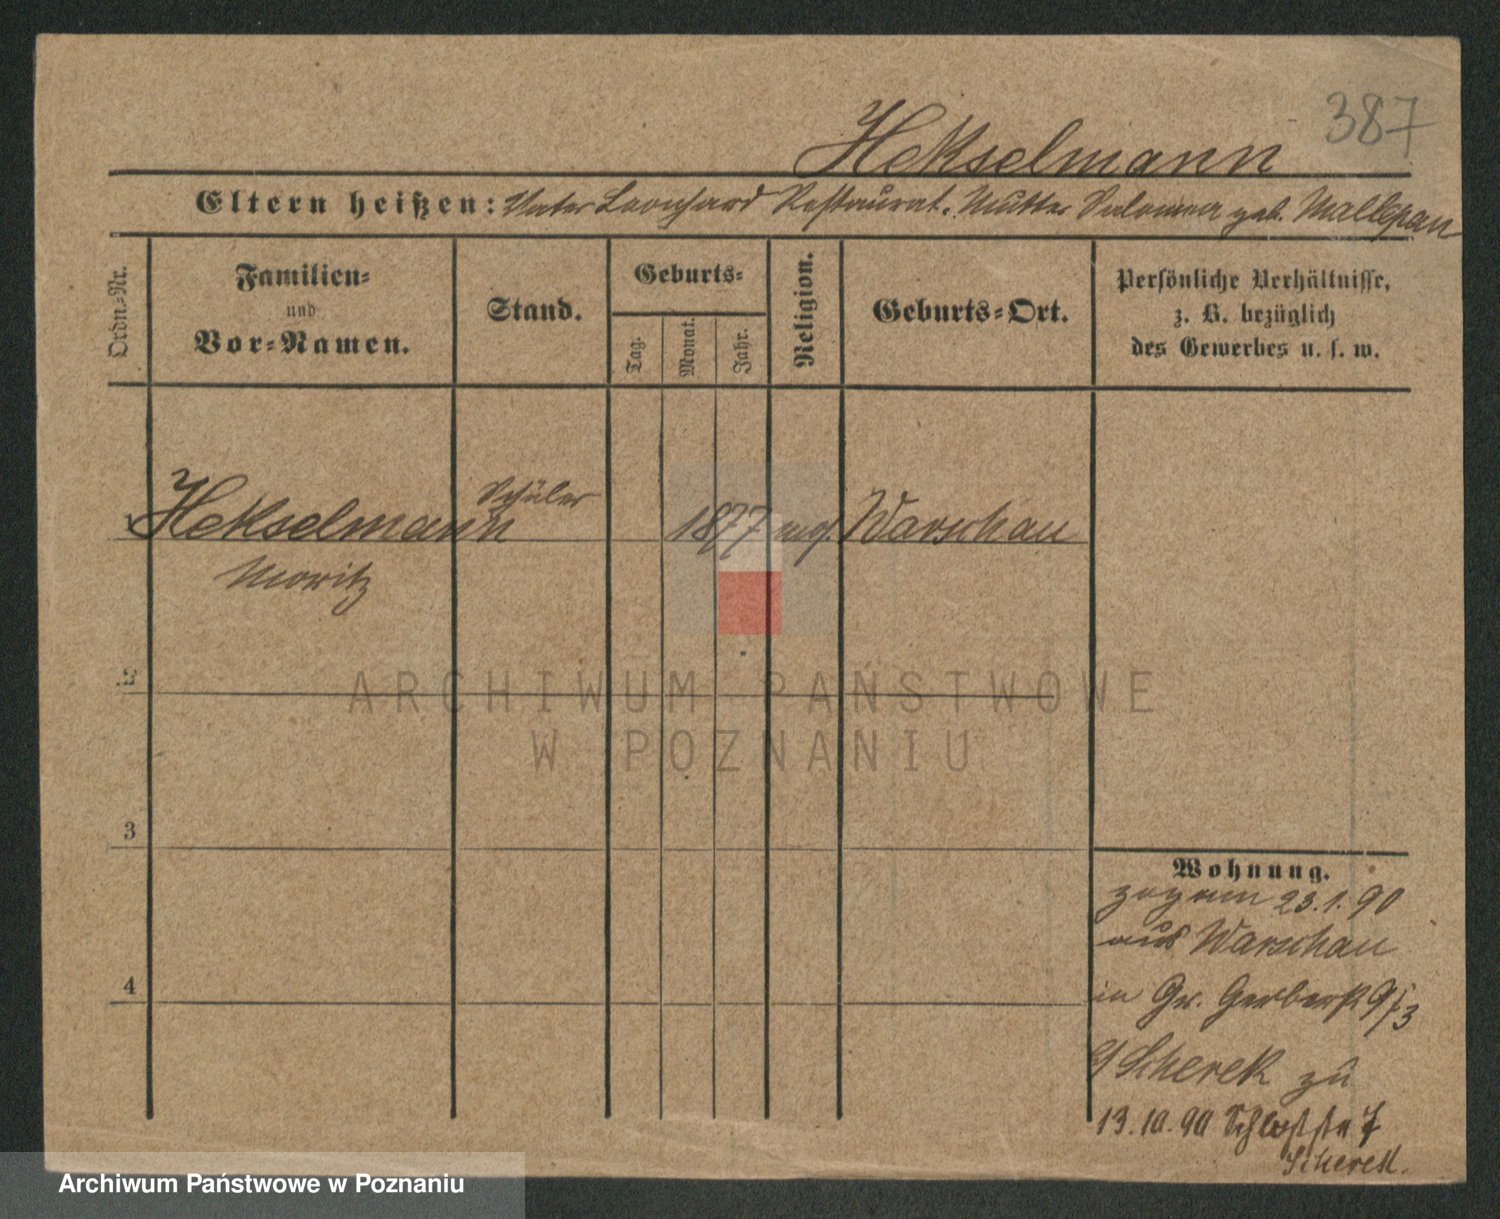 387
Hekselmann
Eltern heißen: Vater Leonhard Restaurat. Mutter Salomea geb. Mallspan
Ordn.-Nr.
Familien-
und
Vor-Namen.
Stand.
Geburts-
Tag.
Monat.
Jahr.
Religion.
Geburts-Ort.
Persönliche Verhältnisse,
z. B. bezüglich
des Gewerbes u. s. w.
1 Hekselmann Schüler 1877 Warschau
Moritz
2
3
4
Wohnung.
zog am 23.1.90
aus Warschau
in Gr. Gerberst 9
Scherek zu
13.10.90 Schloßstr 7
Scherek.
ARCHIWUM PAŃSTWOWE
W POZNANIU
Archiwum Państwowe w Poznaniu